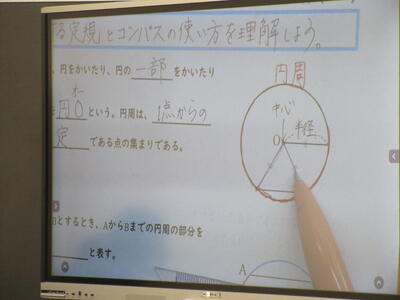 る定規とコンパスの使い方を理解しよう。
、円をかいたり、円の 一部 をかいたり
円周
円O という。円周は、1点からの
中心
半径
O
定 である点の集まりである。
Bとするとき、AからBまでの円周の部分を
と表す。
A